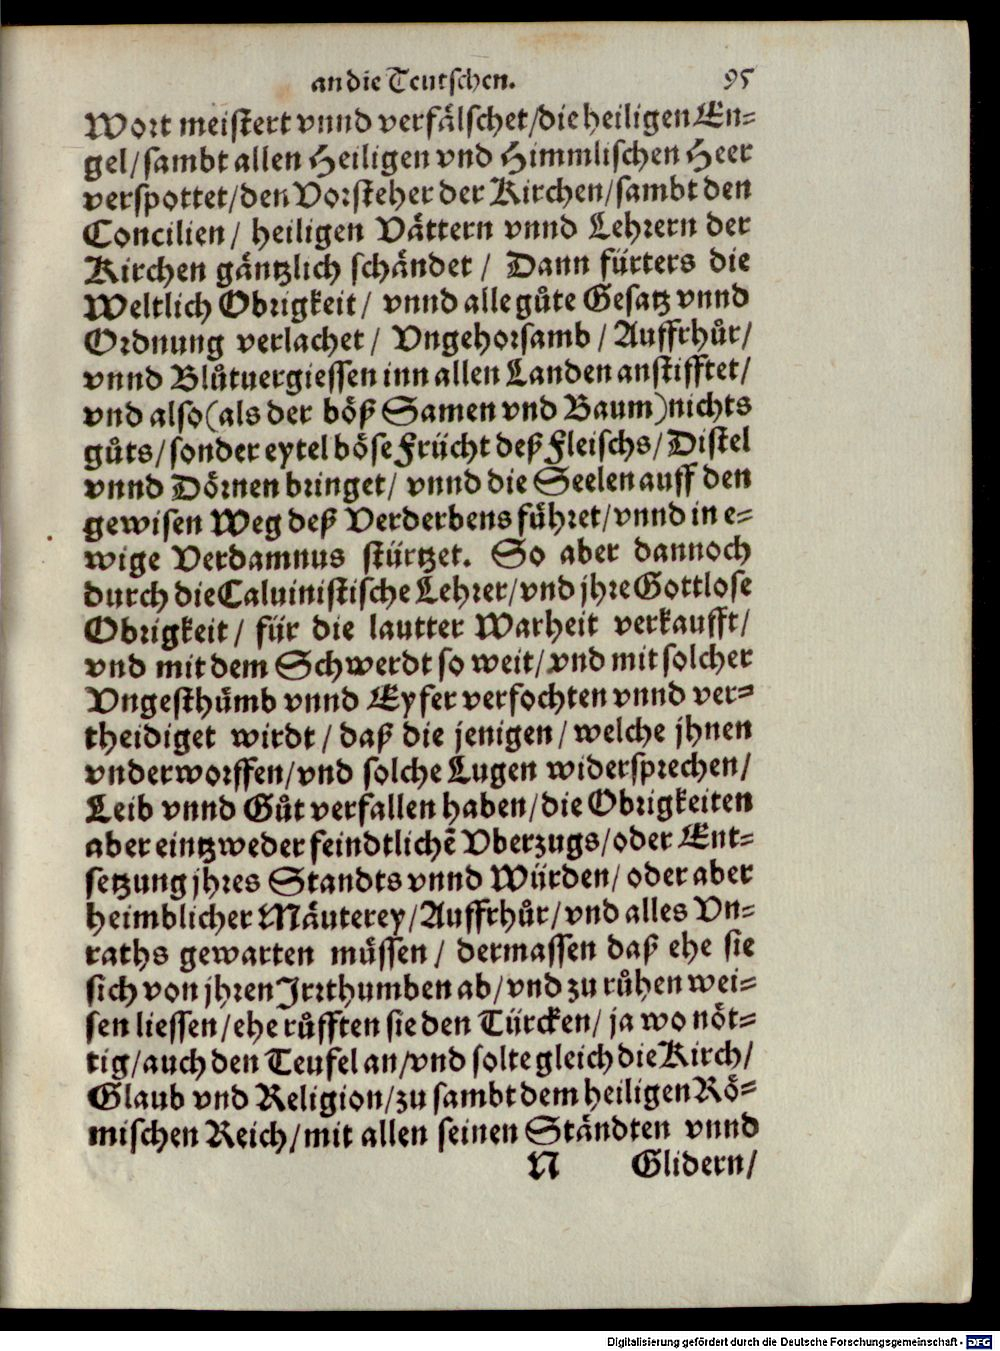 an die Teutschen. 95
Wort meistert vnnd verfälschet/die heiligen En-
gel/sambt allen Heiligen vnd Himmlischen Heer
verspottet/den Vorsteher der Kirchen/sambt den
Concilien/ heiligen Vättern vnnd Lehrern der
Kirchen gäntzlich schändet/ Dann fürters die
Weltlich Obrigkeit/ vnnd alle gůte Gesatz vnnd
Ordnung verlachet/ Vngehorsamb/ Auffrhůr/
vnnd Blůtuergiessen inn allen Landen anstifftet/
vnd also (als der böß Samen vnd Baum) nichts
gůts/sonder eytel böse Frücht deß Fleischs/Distel
vnnd Dörnen bringet/ vnnd die Seelen auff den
gewisen Weg deß Verderbens führet/vnnd in e-
wige Verdamnus stürtzet. So aber dannoch
durch die Caluinistische Lehrer/vnd jhre Gottlose
Obrigkeit/ für die lautter Warheit verkaufft/
vnd mit dem Schwerdt so weit/vnd mit solcher
Vngesthümb vnnd Eyfer verfochten vnnd ver-
theidiget wirdt/ daß die jenigen/ welche jhnen
vnderworffen/vnd solche Lugen widersprechen/
Leib vnnd Gůt verfallen haben/die Obrigkeiten
aber eintzweder feindtlichẽ Vberzugs/oder Ent-
setzung jhres Standts vnnd Würden/ oder aber
heimblicher Mäuterey/Auffrhůr/vnd alles Vn-
raths gewarten müssen/ dermassen daß ehe sie
sich von jhren Irrthumben ab/vnd zu růhen wei-
sen liessen/ehe růfften sie den Türcken/ ja wo nöt-
tig/auch den Teufel an/vnd solte gleich die Kirch/
Glaub vnd Religion/zu sambt dem heiligen Rö-
mischen Reich/mit allen seinen Ständten vnnd
N Glidern/
Digitalisierung gefördert durch die Deutsche Forschungsgemeinschaft - DFG